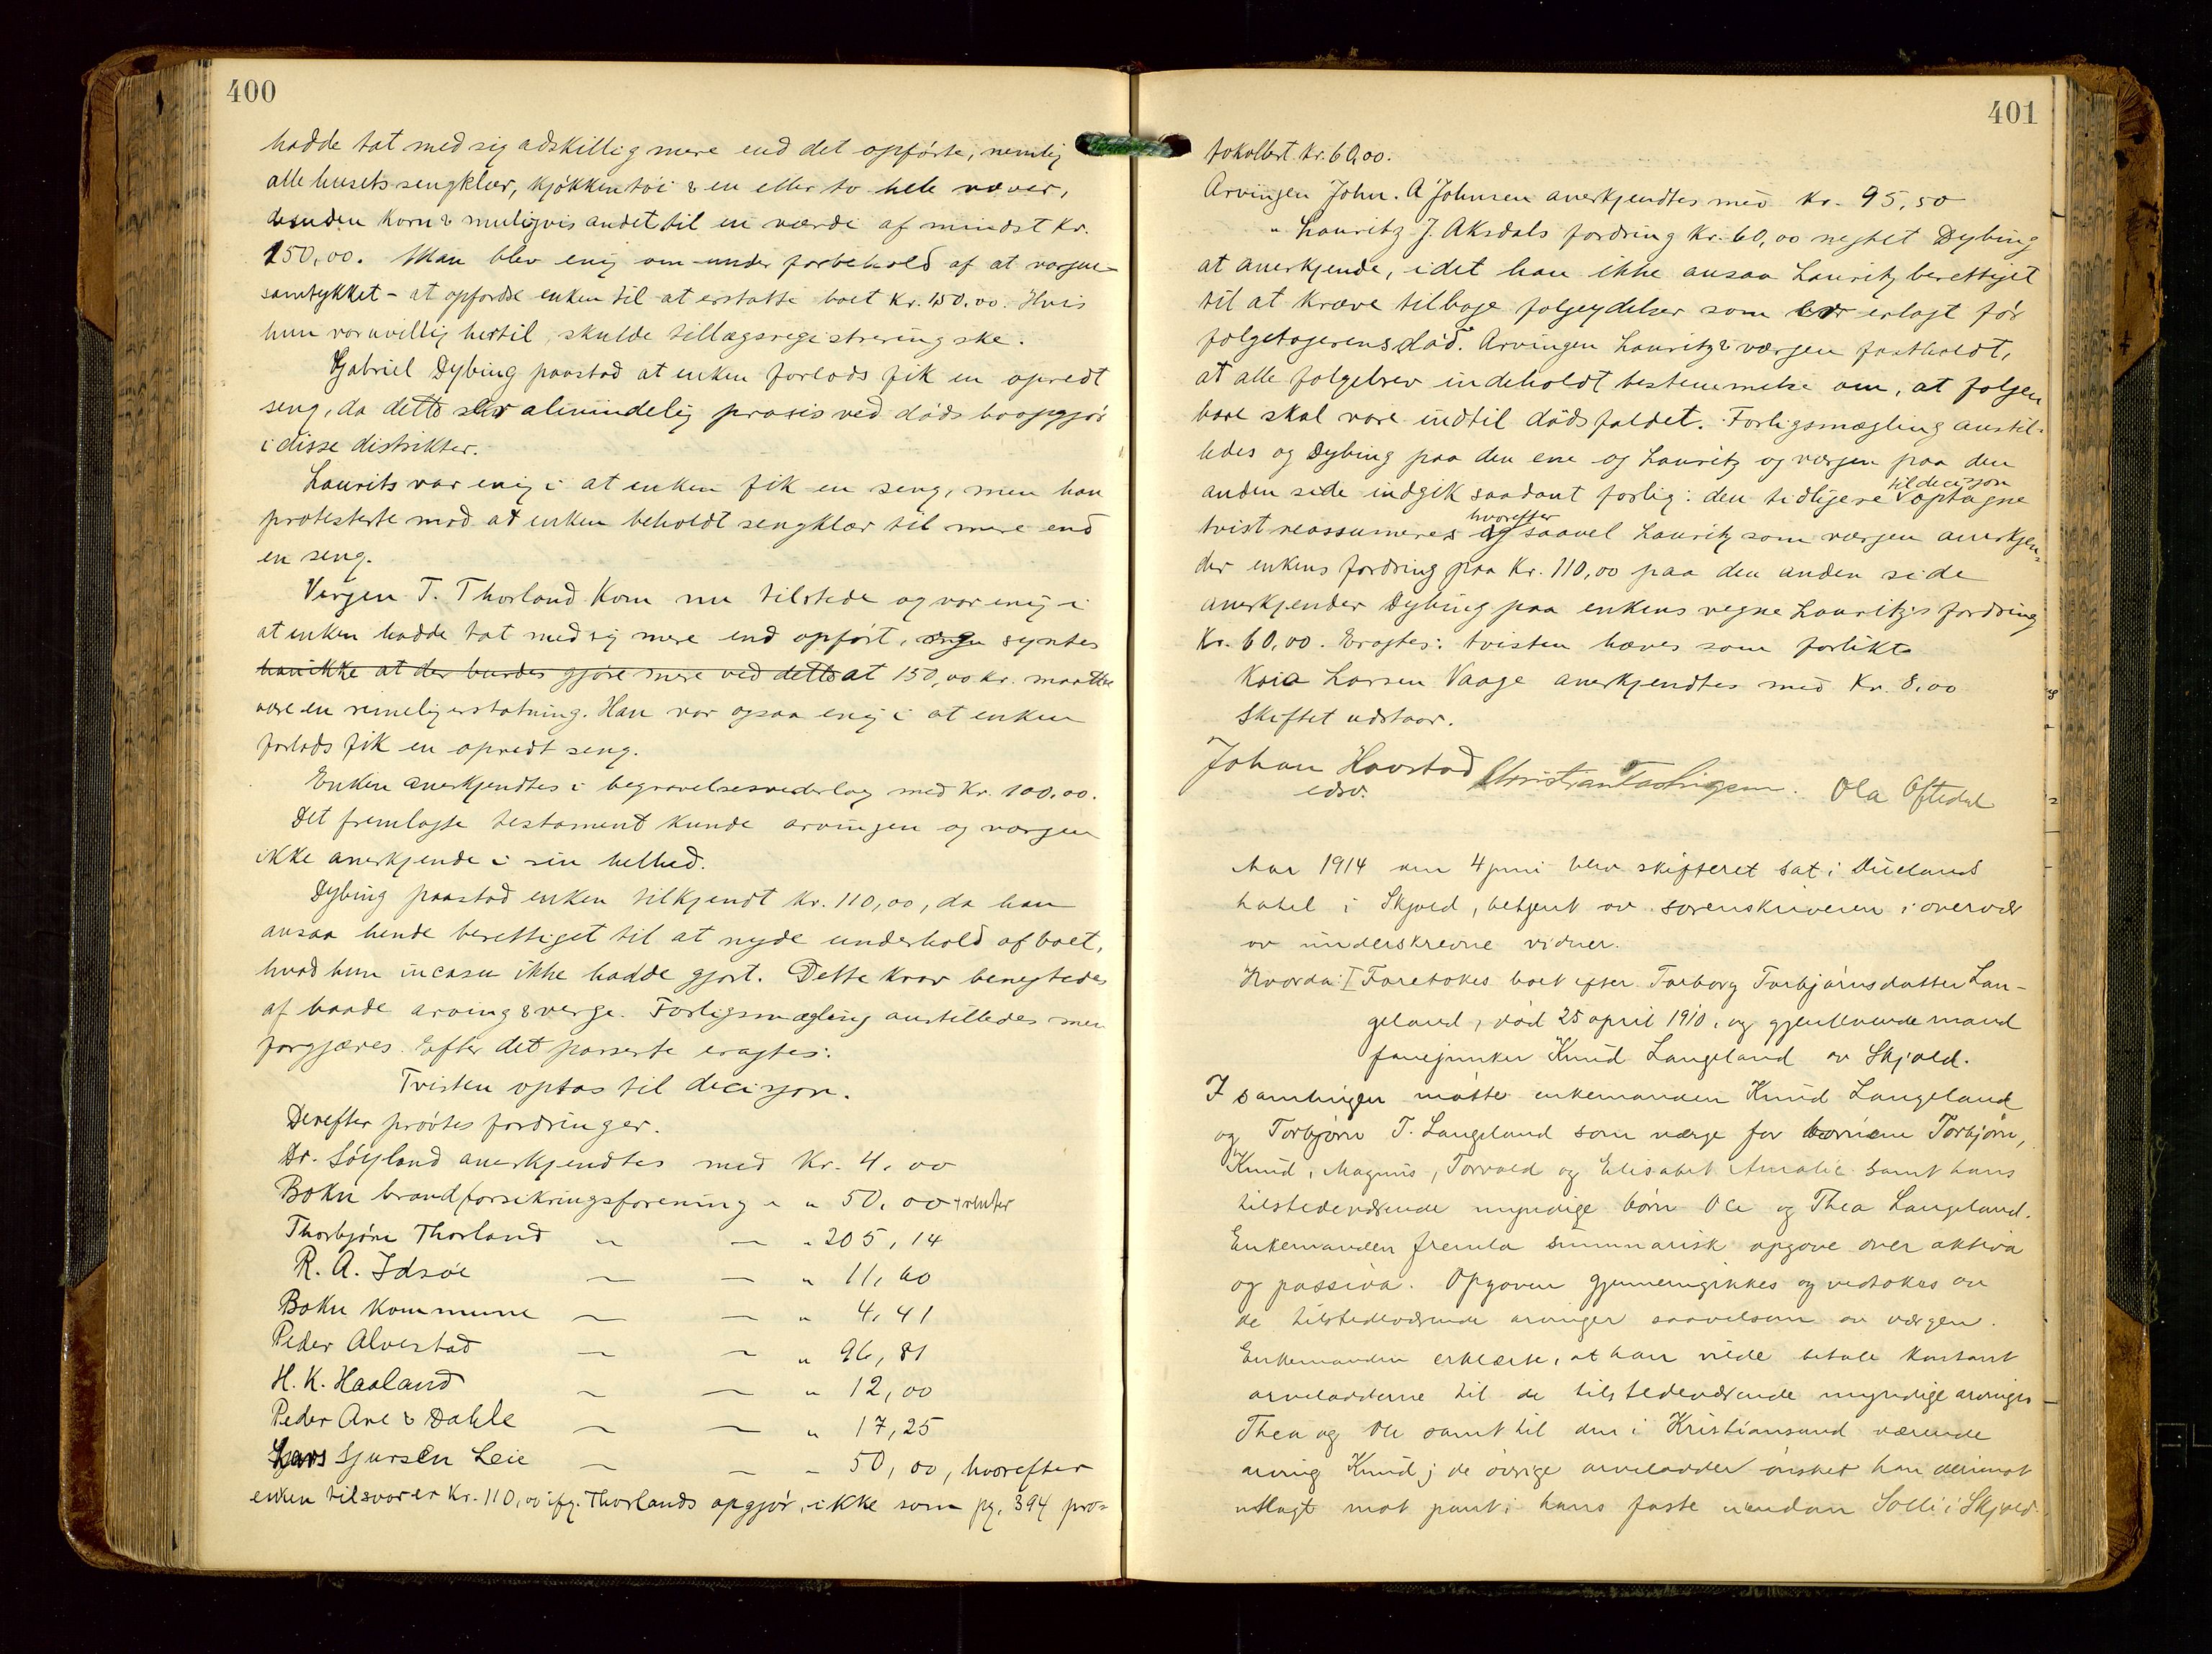 400
hadde tat med sig adskillig mere end det opførte, nemlig
alle husets sengklær, kjøkkentøi & en eller to hele væver,
desuden korn & muligvis andet til en værdi af mindst Kr.
150,00. Man blev enig om under forbehold af at vorgen
samtykket - at opfordre enken til at erstatte boet Kr. 150,00. Hvis
hun var uvillig hertil, skulde tillægsregistrering ske.
Gabriel Dybing paastod at enken forlods fik en opredt
seng, da dette er almindelig praxis ved døds boopgjør
i disse distrikter.
Laurits var enig i at enken fik en seng, men han
protesterte mod at enken beholdt sengklær til mere end
en seng.
Vergen T. Thorland kom nu tilstede og var enig i
at enken hadde tat med sig mere end opført, og syntes
han ikke at der burdes gjøre mere ved dette at 150,00 kr. maatte
være en rimelig erstatning. Han var ogsaa enig i at enken
forlods fik en opredt seng.
Enken anerkjendtes i begravelsesvederlag med Kr. 100,00.
Det fremlagte testament kunde arvingen og værgen
ikke anerkjende i sin helhed.
Dybing paastod enken tilkjendt Kr. 110,00, da han
ansaa hende berettiget til at nyde underhold af boet,
hvad hun incasu ikke hadde gjort. Dette krav benegtedes
af baade arving & verge. Forligsmægling anstilledes men
forgjæves. Efter det passerte eragtes:
Tvisten optas til decisjon.
Derefter prøvtes fordringer.
Dr. Søyland anerkjendtes med Kr. 4,00
Bokn brandforsikringsforening " " 50,00 + renter
Thorbjørn Thorland — — " 205,14
R. A. Idsøe — — " 11,60
Bokn Kommune — — " 4,41
Peder Alvestad — — " 96,81
H. K. Haaland — — " 12,00
Peder Are & Dahle — — " 17,25
Lars Sjursen Leie — — " 50,00, hvorefter
enken tilsvarer Kr. 110,00 ifg. Thorlands opgjør, ikke som pg. 394 pro=
401
tokollert Kr. 60,00.
Arvingen John. A Johnsen anerkjendtes med Kr. 95,50
" Lauritz J. Aksdals fordring Kr. 60,00 negtet Dybing
at anerkjende, idet han ikke ansaa Lauritz berettiget
til at kræve tilbage folgeydelser som er erlagt før
folgetagerens død. Arvingen Lauritz & værgen fastholdt,
at alle folgebrev indeholdt bestemmelse om, at folgen
bare skal vare indtil dødsfaldet. Forligsmægling anstil-
ledes og Dybing paa den ene og Lauritz og værgen paa den
anden side indgik saadant forlig: den tidligere til decisjon optagne
tvist reassumeres hvorefter saavel Lauritz som værgen anerkjen=
der enkens fordring paa Kr. 110,00 paa den anden side
anerkjender Dybing paa enkens vegne Lauritz's fordring
Kr. 60,00. Eragtes: tvisten hæves som forlikt
Kaia Larsen Vaage anerkjendtes med Kr. 8,00
Skiftet utstaar.
Johan Havstad edsv. Christian Ola Oftedal
Aar 1914 den 4 juni blev skifteret sat i Duelands
hotel i Skjold, betjent av sorenskriveren i overvær
av underskrevne vidner.
Hvorda: I Foretokes boet efter Torborg Torbjørnsdatter Lan-
geland, død 25 april 1910, og gjenlevende mand
fanejunker Knud Langeland av Skjold.
I samlingen møtte enkemanden Knud Langeland
og Torbjørn T. Langeland som værge for børnene Torbjørn,
Knud, Magnus, Torvald og Elisabet Amalie samt hans
tilstedeværende myndige børn Ole og Thea Langeland.
Enkemanden fremla summarisk opgave over aktiva
og passiva. Opgaven gjennemgikkes og vedtokes av
de tilstedeværende arvinger saavelsom av værgen.
Enkemanden erklærte, at han vilde betale kontant
arveloddene til de tilstedeværende myndige arvinger
Thea og Ole samt til den i Kristiansund værende
arving Knud; de øvrige arvelodder ønsket han derimot
utlagt mot pant i hans faste eiendom Solli i Skjold.